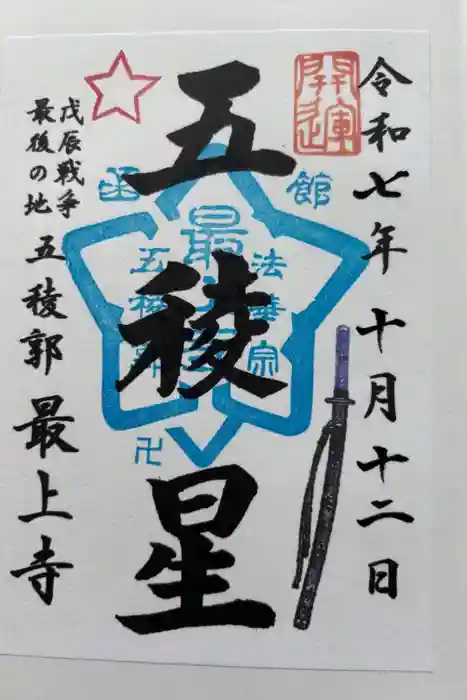 開運
令和七年 十月十二日
五稜星
函館
法華宗
最上寺
五稜郭
卍
戊辰戦争
最後の地
五稜郭 最上寺